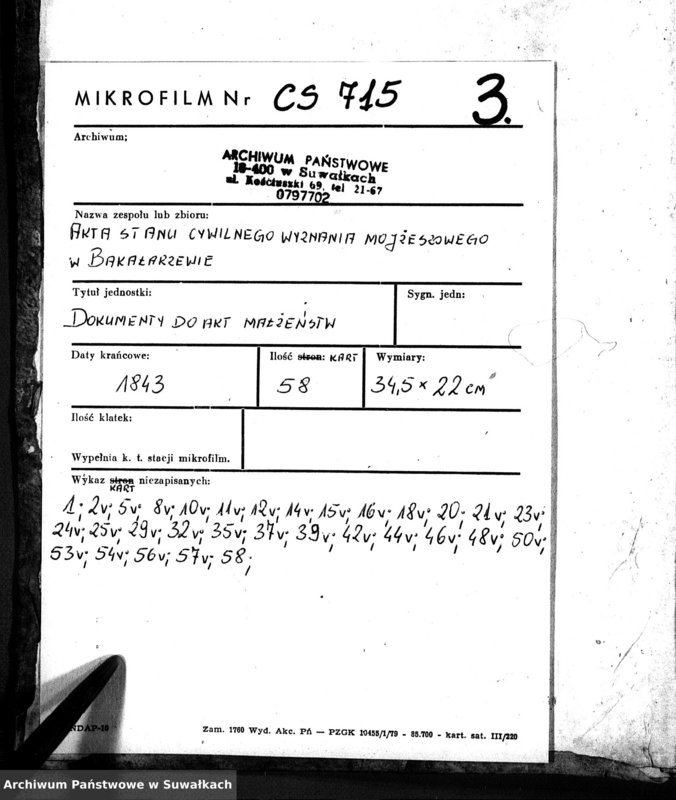 MIKROFILM Nr CS 715 3.
Archiwum;
ARCHIWUM PAŃSTWOWE
16-400 w Suwałkach
ul. Kościuszki 69, tel 21-67
0797702
Nazwa zespołu lub zbioru:
AKTA STANU CYWILNEGO WYZNANIA MOJŻESZOWEGO
W BAKAŁARZEWIE
Tytuł jednostki:
Sygn. jedn:
DOKUMENTY DO AKT MAŁŻEŃSTW
Daty krańcowe:
Ilość stron: KART
Wymiary:
1843
58
34,5 × 22 cm
Ilość klatek:
Wypełnia k. t. stacji mikrofilm.
Wykaz stron niezapisanych:
KART
1; 2v; 5v; 8v; 10v; 11v; 12v; 14v; 15v; 16v; 18v; 20; 21v; 23v;
24v; 25v; 29v; 32v; 35v; 37v; 39v; 42v; 44v; 46v; 48v; 50v;
53v; 54v; 56v; 57v; 58;
NDAP-10
Zam. 1760 Wyd. Akc. Pń — PZGK 10455/1/79 - 85.700 - kart. sat. III/220
Archiwum Państwowe w Suwałkach